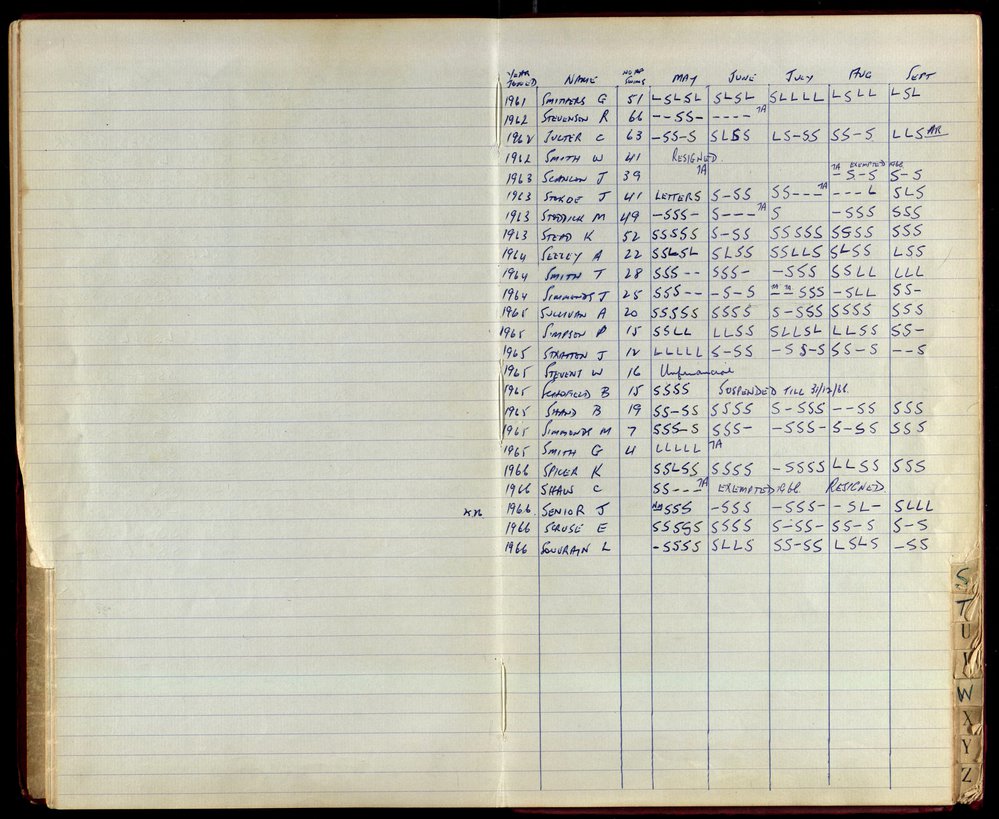 YEAR JOINED NAME NO OF SWIMS MAY JUNE JULY AUG SEPT
1961 SMITHERS G 51 LSLSL SLSL SLLLL LSLL LSL
1962 STEVENSON R 66 --SS- ---- 7A
1962 C 63 -SS-S SLSS LS-SS SS-S LLS AR
1962 SMITH W 41 RESIGNED
1963 SCANLON J 39 7A 7A EXEMPTED 1966 -S-S S-S
1963 J 41 LETTERS S-SS SS--- 7A ---L SLS
1963 M 49 -SSS- S--- 7A S -SSS SSS
1963 STEAD K 52 SSSSS S-SS SSSSS SSSS SSS
1964 SEELEY A 22 SSLSL SLSS SSLLS SLSS LSS
1964 SMITH T 28 SSS-- SSS- -SSS SSLL LLL
1964 SIMMONDS J 25 SSS-- -S-S 7A 7A --SSS -SLL SS-
1965 SULLIVAN A 20 SSSSS SSSS S-SSS SSSS SSS
1965 SIMPSON P 15 SSLL LLSS SLLSL LLSS SS-
1965 STRATTON J 12 LLLLL S-SS -SS-S SS-S --S
1965 STEVENS W 16 Unfinancial
1965 SCHOFIELD B 15 SSSS SUSPENDED TILL 31/12/66.
1965 SHAND B 19 SS-SS SSSS S-SSS --SS SSS
1965 SIMMONDS M 7 SSS-S SSS- -SSS- S-SS SSS
1965 SMITH G 4 LLLLL 7A
1966 SPICER K SSLSS SSSS -SSSS LLSS SSS
1966 SHAW C SS--- 7A EXEMPTED 1966 RESIGNED
1966 SENIOR J SSS -SSS -SSS- -SL- SLLL
1966 SCRUSE E SSSSS SSSS S-SS- SS-S S-S
1966 L -SSSS SLLS SS-SS LSLS -SS
S
T
U
W
X
Y
Z